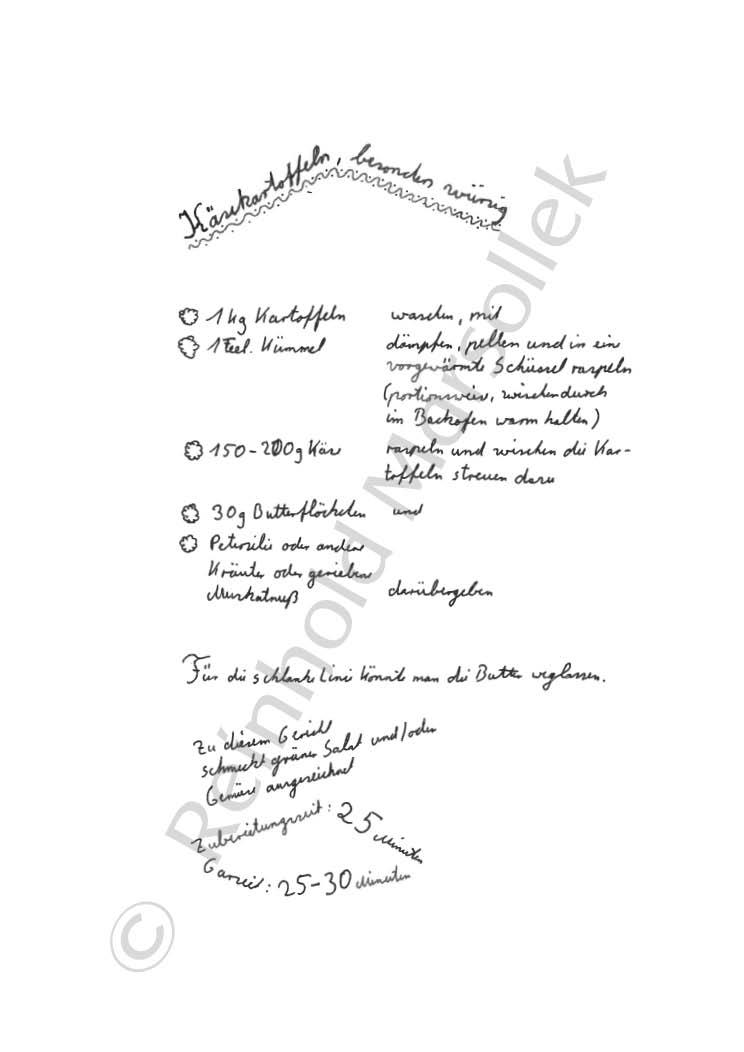 Käsekartoffeln, besonders würzig
1 kg Kartoffeln waschen, mit
1 Teel. Kümmel dämpfen, pellen und in ein
vorgewärmte Schüssel raspeln
(portionsweise, zwischendurch
im Backofen warm halten)
150-200g Käse raspeln und zwischen die Kar-
toffeln streuen dazu
30g Butterflöckchen und
Petersilie oder andere
Kräuter oder geriebene
Muskatnuß darübergeben
Für die schlanke Linie könnte man die Butter weglassen.
Zu diesem Gericht
schmeckt grüner Salat und/oder
Gemüse ausgezeichnet
Zubereitungszeit: 25 Minuten
Garzeit: 25-30 Minuten
© Reinhold Marsollek